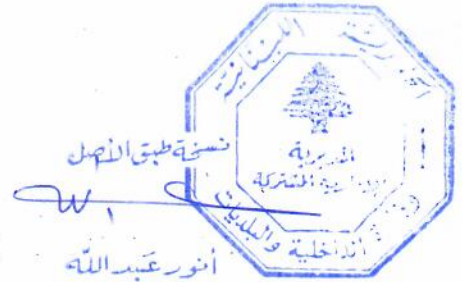 الجمهورية اللبنانية
المديرية
الإدارية المشتركة
وزارة الداخلية والبلديات
نسخة طبق الأصل
أنور عبد الله